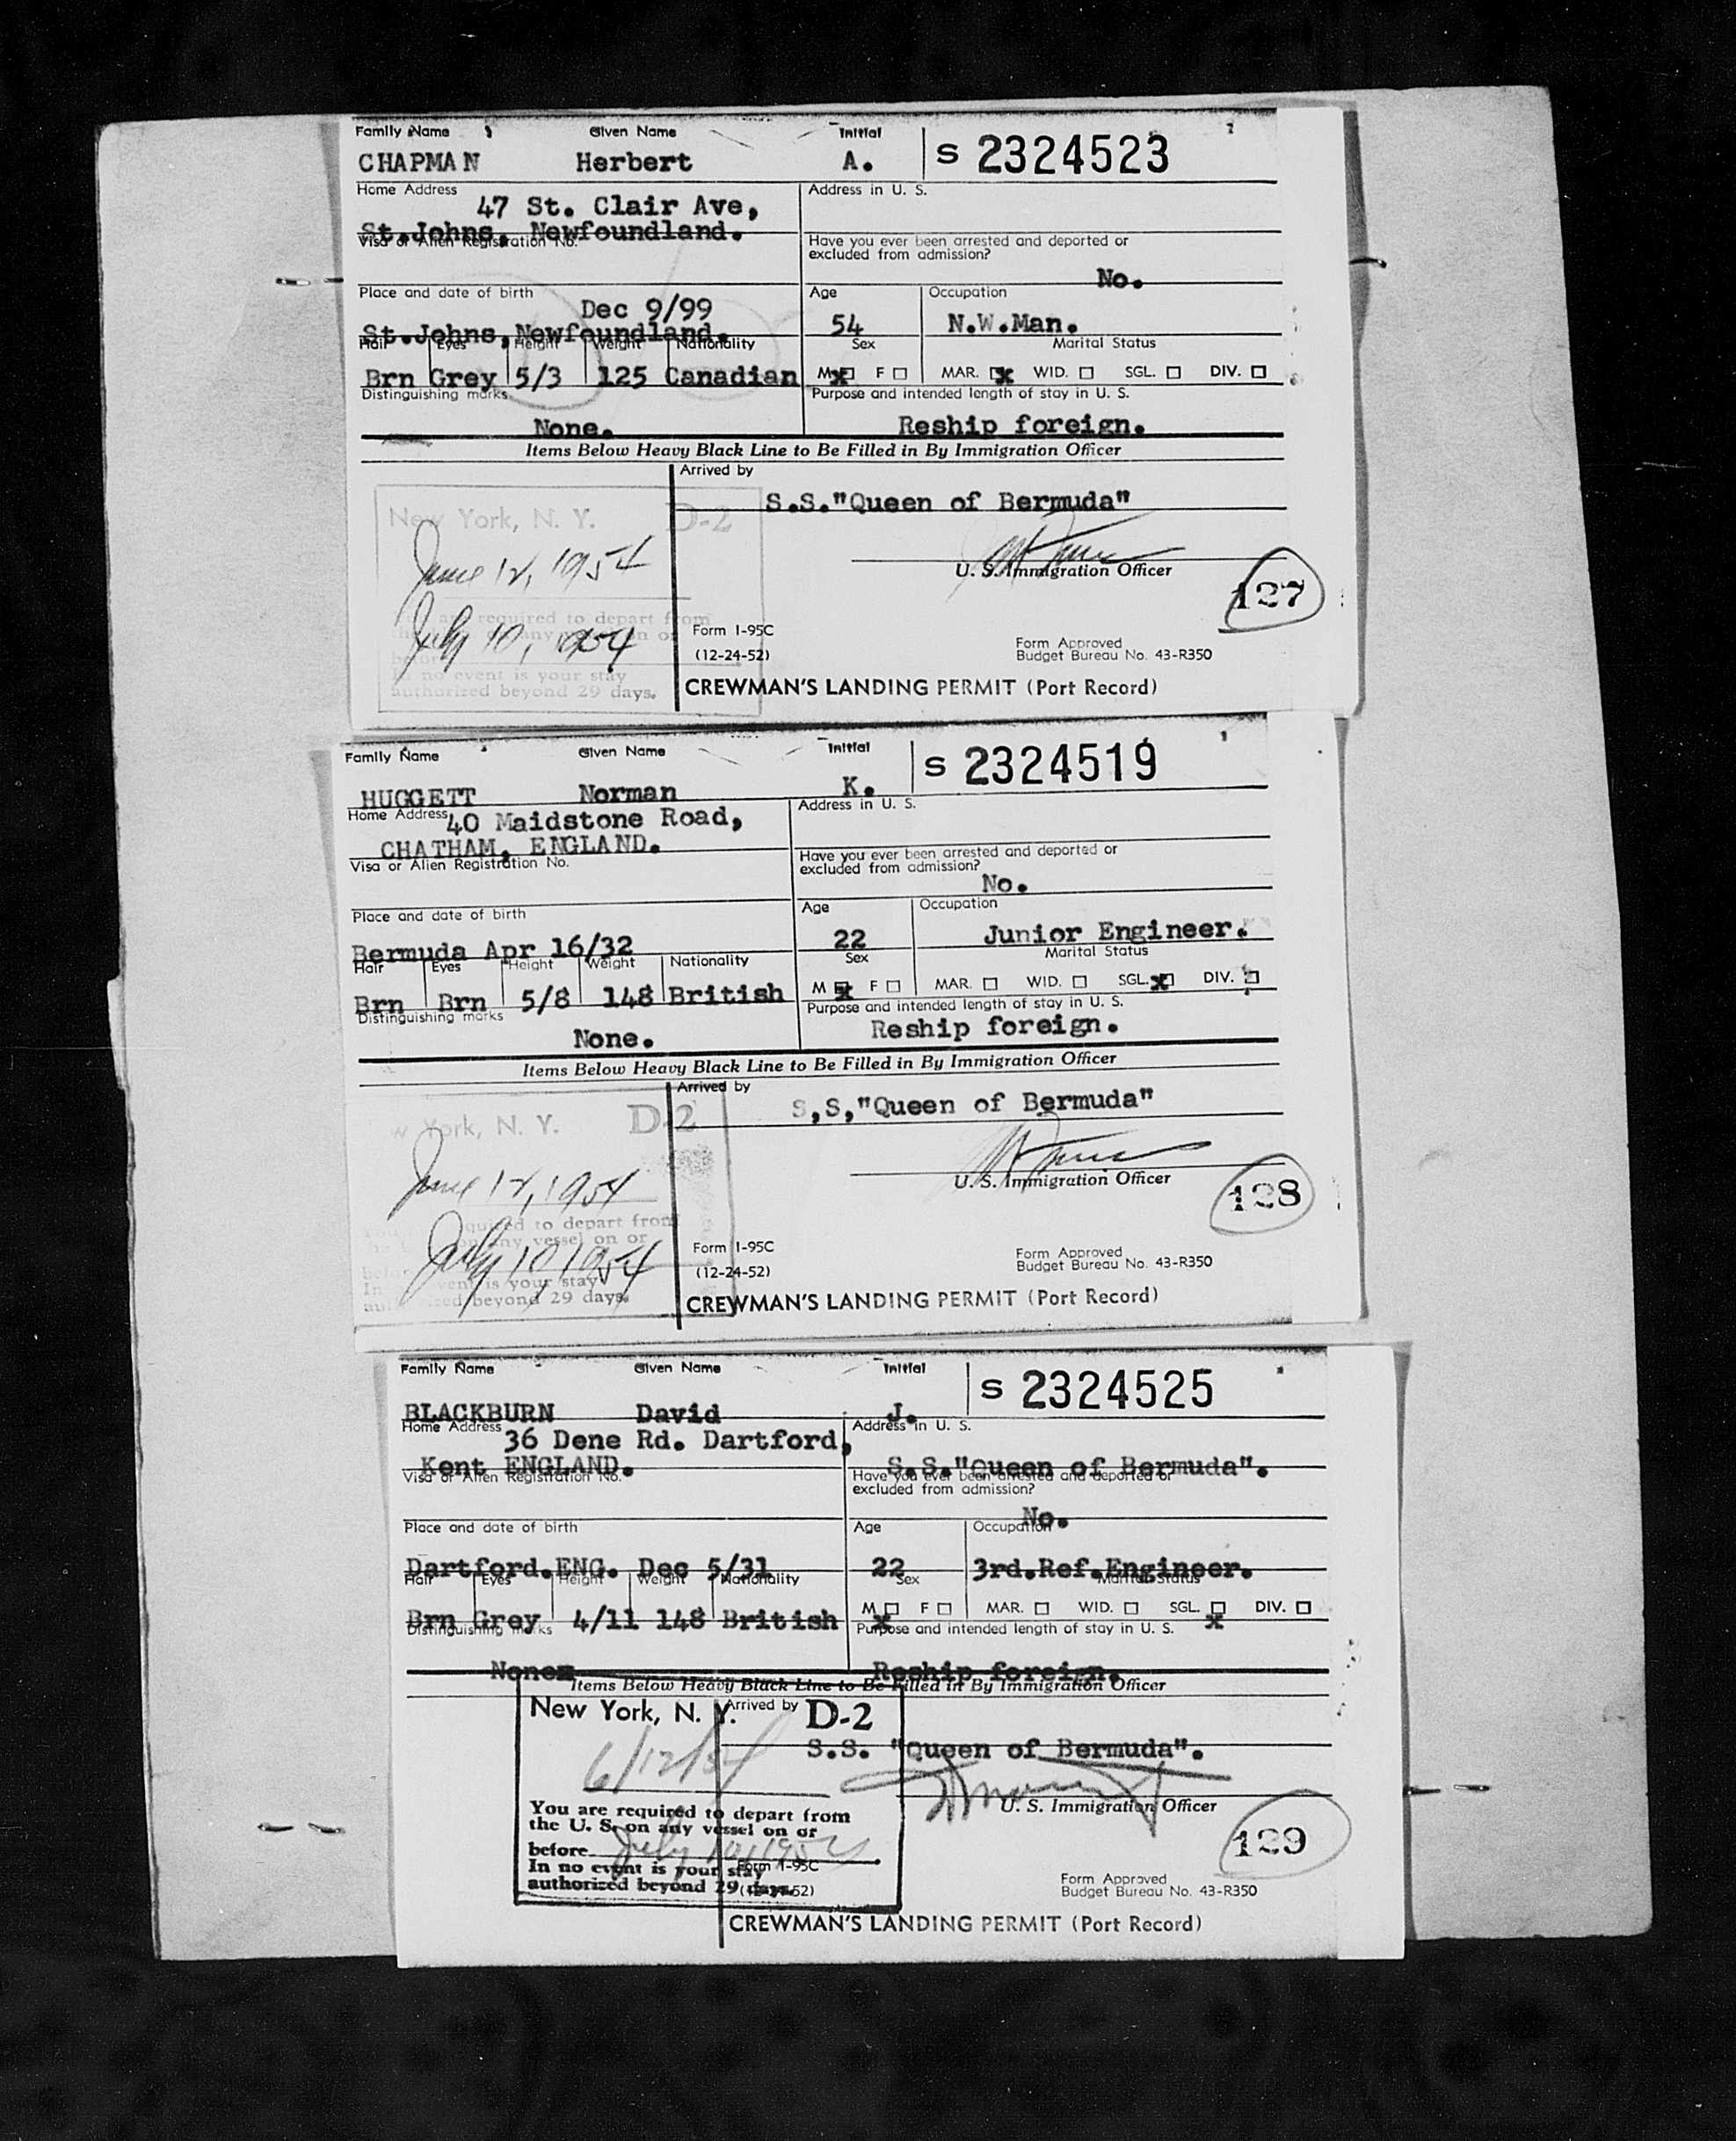 Family Name Given Name Initial S 2324523
CHAPMAN Herbert A.
Home Address Address in U. S.
47 St. Clair Ave,
St.Johns, Newfoundland.
Visa or Alien Registration No. Have you ever been arrested and deported or
excluded from admission?
No.
Place and date of birth Age Occupation
Dec 9/99
St.Johns,Newfoundland. 54 N.W.Man.
Hair Eyes Height Weight Nationality Sex Marital Status
Brn Grey 5/3 125 Canadian M x F MAR. x WID. SGL. DIV.
Distinguishing marks Purpose and intended length of stay in U. S.
None. Reship foreign.
Items Below Heavy Black Line to Be Filled in By Immigration Officer
Arrived by
New York, N. Y. D-2 S.S."Queen of Bermuda"
June 12, 1954
U. S. Immigration Officer
127
required to depart from
July 10, 1954
Form I-95C Form Approved
(12-24-52) Budget Bureau No. 43-R350
In no event is your stay
authorized beyond 29 days.
CREWMAN'S LANDING PERMIT (Port Record)
Family Name Given Name Initial S 2324519
HUGGETT Norman K.
Home Address Address in U. S.
40 Maidstone Road,
CHATHAM, ENGLAND.
Visa or Alien Registration No. Have you ever been arrested and deported or
excluded from admission?
No.
Place and date of birth Age Occupation
Bermuda Apr 16/32 22 Junior Engineer.
Hair Eyes Height Weight Nationality Sex Marital Status
Brn Brn 5/8 148 British M x F MAR. WID. SGL. x DIV.
Distinguishing marks Purpose and intended length of stay in U. S.
None. Reship foreign.
Items Below Heavy Black Line to Be Filled in By Immigration Officer
Arrived by
York, N. Y. D-2 S,S,"Queen of Bermuda"
June 12, 1954
U. S. Immigration Officer
128
to depart from
any vessel on or
July 10 1954
Form I-95C Form Approved
(12-24-52) Budget Bureau No. 43-R350
In event is your stay
beyond 29 days.
CREWMAN'S LANDING PERMIT (Port Record)
Family Name Given Name Initial S 2324525
BLACKBURN David J.
Home Address Address in U. S.
36 Dene Rd. Dartford,
Kent ENGLAND. S.S."Queen of Bermuda".
Visa or Alien Registration No. Have you ever been arrested and deported or
excluded from admission?
No.
Place and date of birth Age Occupation
Dartford.ENG. Dec 5/31 22 3rd.Ref.Engineer.
Hair Eyes Height Weight Nationality Sex Marital Status
Brn Grey 4/11 148 British M x F MAR. WID. SGL. x DIV.
Distinguishing marks Purpose and intended length of stay in U. S.
None Reship foreign.
Items Below Heavy Black Line to Be Filled in By Immigration Officer
New York, N. Y. Arrived by D-2
S.S. "Queen of Bermuda".
6/12/54
U. S. Immigration Officer
You are required to depart from
the U. S. on any vessel on or
before July 10, 1954
129
In no event is your stay Form I-95C
authorized beyond 29 days.
Form Approved
Budget Bureau No. 43-R350
CREWMAN'S LANDING PERMIT (Port Record)